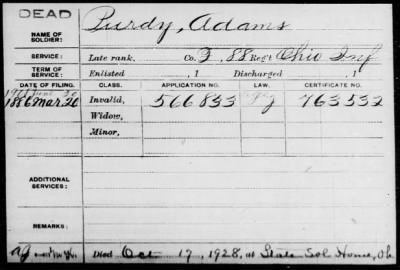 DEAD
NAME OF SOLDIER: Purdy, Adams
SERVICE: Late rank, Co. 88 Reg't Ohio Inf
TERM OF SERVICE: Enlisted , 1 Discharged , 1
DATE OF FILING. CLASS. APPLICATION NO. LAW. CERTIFICATE NO.
1886 Mar. 20 Invalid, 566833 763532
Widow,
Minor,
ADDITIONAL SERVICES:
REMARKS:
Died Oct 17, 1928, at State Sol Home, Oh